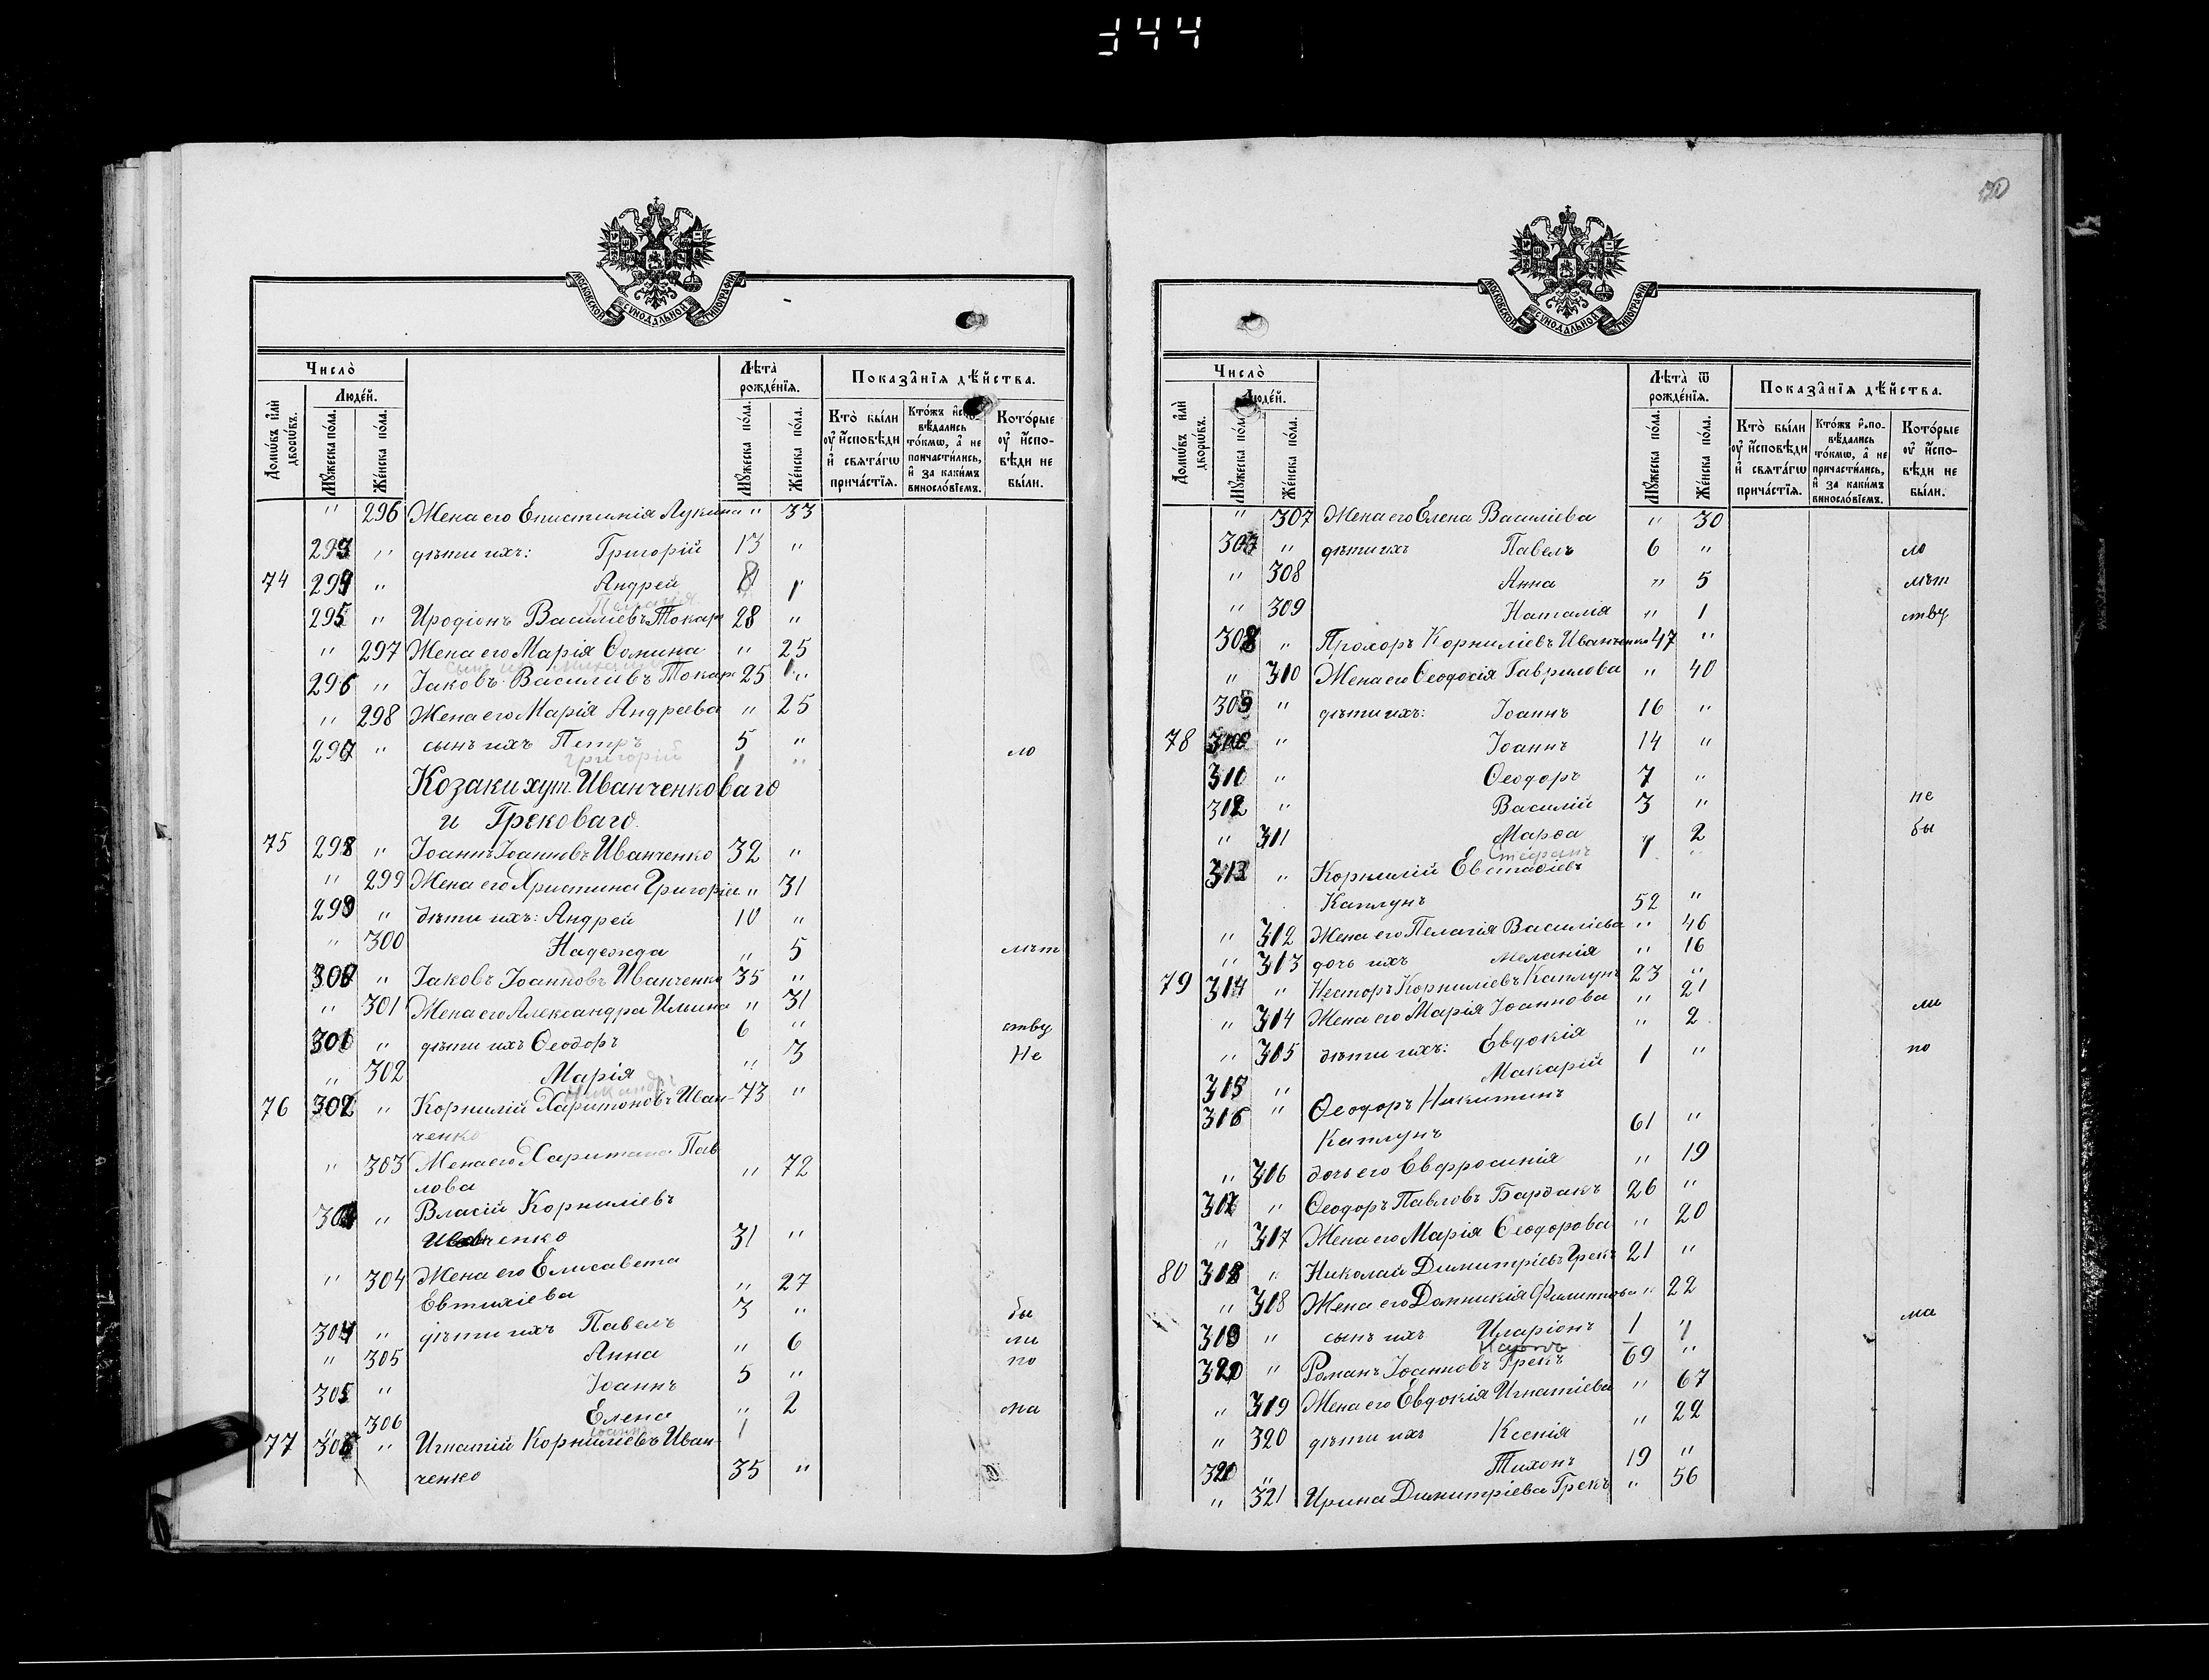 50
МОСКОВСКОЙ СѴНОДАЛЬНОЙ ТИПОГРАФІИ
Число̀
Люде́й.
Домѡ́въ и҆лѝ дворѡ́въ.
Мꙋ́жеска по́ла.
Же́нска по́ла.
Лѣ́та рожде́нїѧ.
Мꙋ́жеска по́ла.
Же́нска по́ла.
Показа̑нїѧ дѣ́йства.
Кто̀ бы́ли оу҆ и҆́сповѣди и҆ свѧта́гѡ прича́стїѧ.
Кто́жъ вѣ́дались то́кмѡ, а҆ не причасти́лись, и҆ за каки́мъ винослові́емъ.
Кото́рые оу҆ и҆спо- вѣди не бы́ли.
" 296 Жена его Епистимія Лукина " 33
293 " дѣти ихъ: Григорій 13 "
74 294 " Андрей 8
Пелагія " 1
295 " Иродіонъ Василіевъ Токарь 28 "
" 297 Жена его Марія Ѳомина " 25
сынъ ихъ Михаилъ 1
296 " Іаковъ Василіевъ Токарь 25 "
" 298 Жена его Марія Андреева " 25
297 " сынъ ихъ Петръ 5 " ло
Григорій 1 "
Козаки хут. Иванченковаго
и Грековаго.
75 298 " Іоаннъ Іоанновъ Иванченко 32 "
" 299 Жена его Христина Григоріе. " 31
299 " дѣти ихъ: Андрей 10 "
" 300 Надежда " 5 лѣт
300 " Іаковъ Іоанновъ Иванченко 35 "
" 301 Жена его Александра Ильина " 31
301 " дѣти ихъ Ѳеодоръ 6 " ству
" 302 Марія " 3 Не
76 302 " Корнилій Харитоновъ Иван- 73 "
ченко
" 303 Жена его Харитина Пав
лова " 72
303 " Власій Корниліевъ
Иванченко 31 "
" 304 Жена его Елисавета
Евтихіева " 27
304 " дѣти ихъ Павелъ 3 " бы
" 305 Анна " 6 ли
305 " Іоаннъ 5 " по
" 306 Елена " 2 ма
Іоаннъ 1
77 306 " Игнатій Корниліевъ Иван-
ченко 35 "
МОСКОВСКОЙ СѴНОДАЛЬНОЙ ТИПОГРАФІИ
Число̀
Люде́й.
Домѡ́въ и҆лѝ дворѡ́въ.
Мꙋ́жеска по́ла.
Же́нска по́ла.
Лѣ́та ѿ рожде́нїѧ.
Мꙋ́жеска по́ла.
Же́нска по́ла.
Показа̑нїѧ дѣ́йства.
Кто̀ бы́ли оу҆ и҆́сповѣди и҆ свѧта́гѡ прича́стїѧ.
Кто́жъ и҆спо- вѣ́дались то́кмѡ, а҆ не причасти́лись, и҆ за каки́мъ винослові́емъ.
Кото́рые оу҆ и҆спо- вѣди не бы́ли.
" 307 Жена его Елена Василіева " 30
307 " дѣти ихъ Павелъ 6 " ло
" 308 Анна " 5 лѣт
" 309 Наталія " 1 ству
308 " Прохоръ Корниліевъ Иванченко 47 "
" 310 Жена его Ѳеодосія Гаврилова " 40
309 " дѣти ихъ: Іоаннъ 16 "
78 310 " Іоаннъ 14 "
311 " Ѳеодоръ 7 "
312 " Василій 3 " не
" 311 Марѳа " 2 бы
Стефанъ 1 "
313 " Корнилій Евстаѳіевъ
Каплунъ 52 "
" 312 Жена его Пелагія Василіева " 46
" 313 дочь ихъ Меланія " 16
79 314 " Несторъ Корниліевъ Каплунъ 23 "
" 314 Жена его Марія Іоаннова " 21 ли
" 315 дѣти ихъ: Евдокія " 2
315 " Макарій 1 " по
316 " Ѳеодоръ Никитинъ
Каплунъ 61 "
" 316 дочь его Евфросинія " 19
317 " Ѳеодоръ Павловъ Бардакъ 26 "
" 317 Жена его Марія Ѳеодорова " 20
80 318 " Николай Димитріевъ Грекъ 21 "
" 318 Жена его Домникія Филиппова " 22
319 " сынъ ихъ Иларіонъ 1 " ма
320 " Романъ Іоанновъ Грекъ 69 "
" 319 Жена его Евдокія Игнатіева " 67
" 320 дѣти ихъ Ксенія " 22
321 " Тихонъ 19 "
" 321 Ирина Димитріева Грекъ " 56